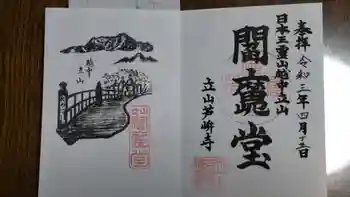 奉拝 令和三年四月十三日
日本三霊山越中立山
閻魔堂
立山芦峅寺
越中
立山